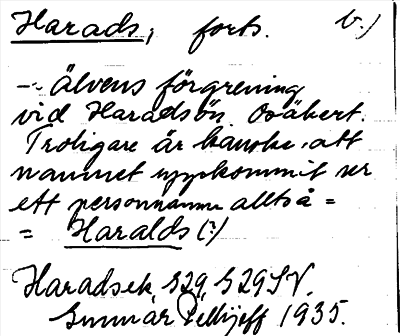 Harads, forts. b.)
- älvens förgrening
vid Haradsön. Osäkert.
Troligare är kanske, att
namnet uppkommit ur
ett personnamn alltså =
= Haralds (?)
Haradsek. S29, S29SV.
Gunnar Pellijeff 1935.